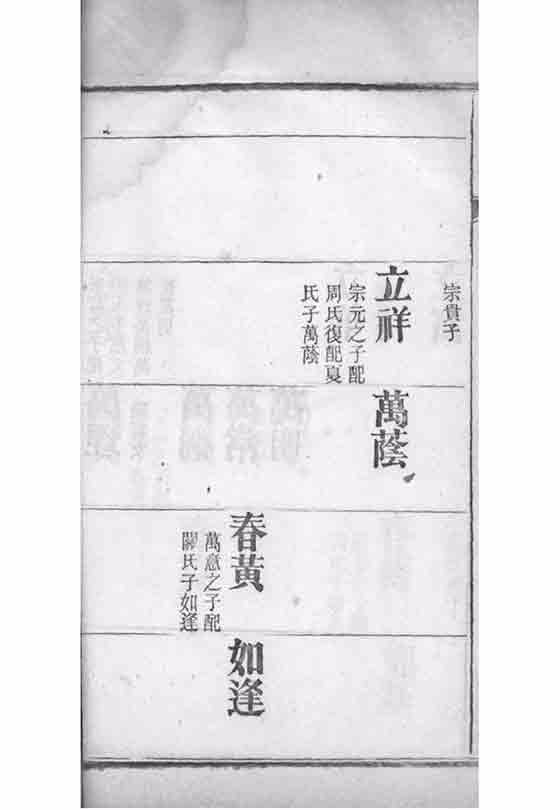 宗貴子
立祥
宗元之子配
周氏復配夏
氏子萬蔭
萬蔭
春黃
萬意之子配
關氏子如逢
如逢